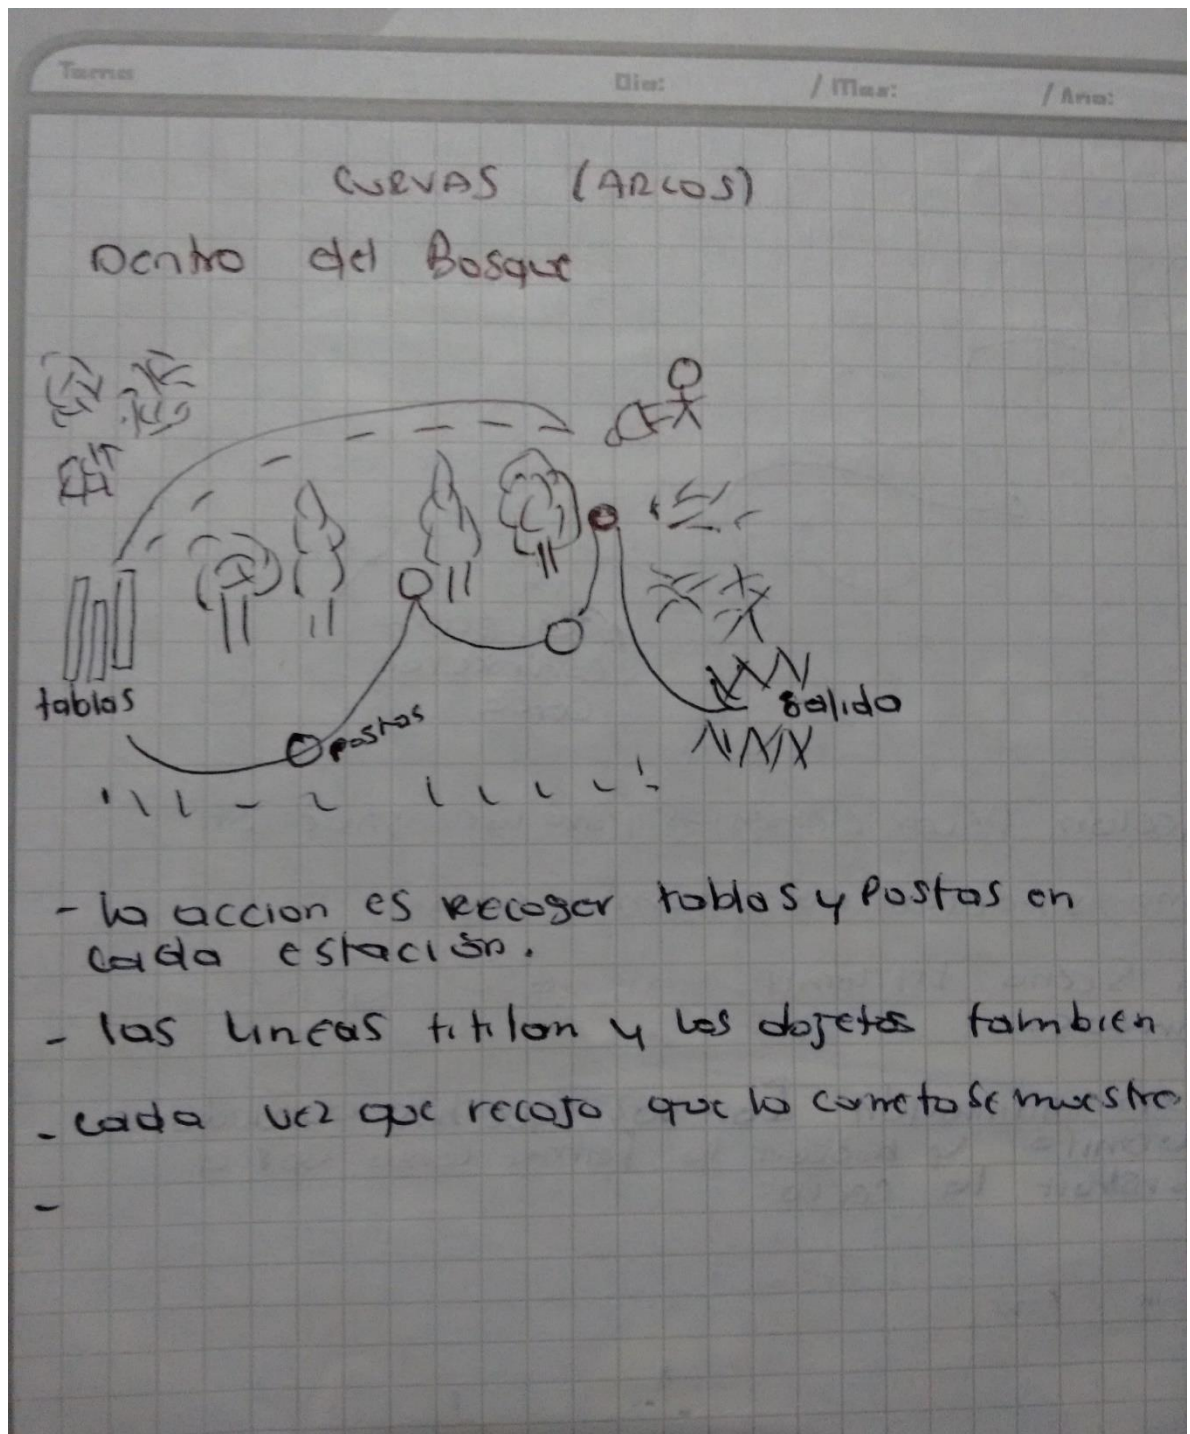 Tema Dia: / Mes: / Ano:
CURVAS (ARCOS)
Dentro del Bosque
tablas
postas
salida
- la accion es recoger tablas y Postas en
cada estación.
- las lineas titilan y los objetos tambien
- cada vez que recojo que la carreta se muestre
-